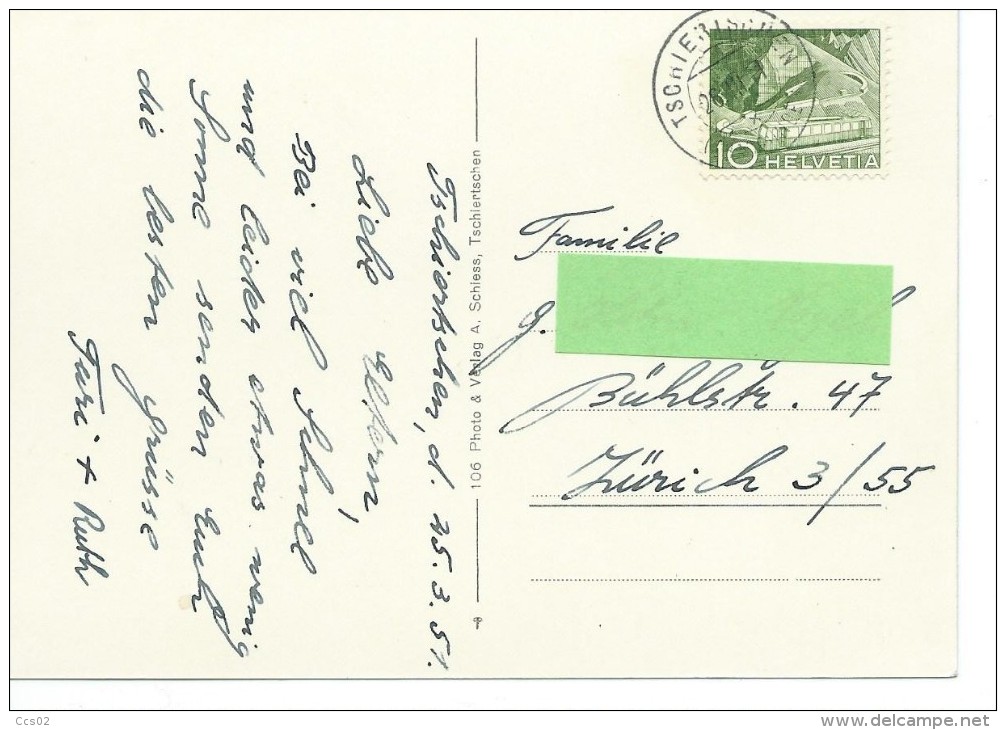 Tschiertschen, d. 25.3.51.
Liebe Eltern,
Bei viel Schnee
und leider etwas wenig
Sonne senden Euch
die besten Grüsse
Turi + Ruth
106 Photo & Verlag A. Schiess, Tschiertschen
TSCHIERTSCHEN
10 HELVETIA
Familie
G.
Bühlstr. 47
Zürich 3/55
Ccs02